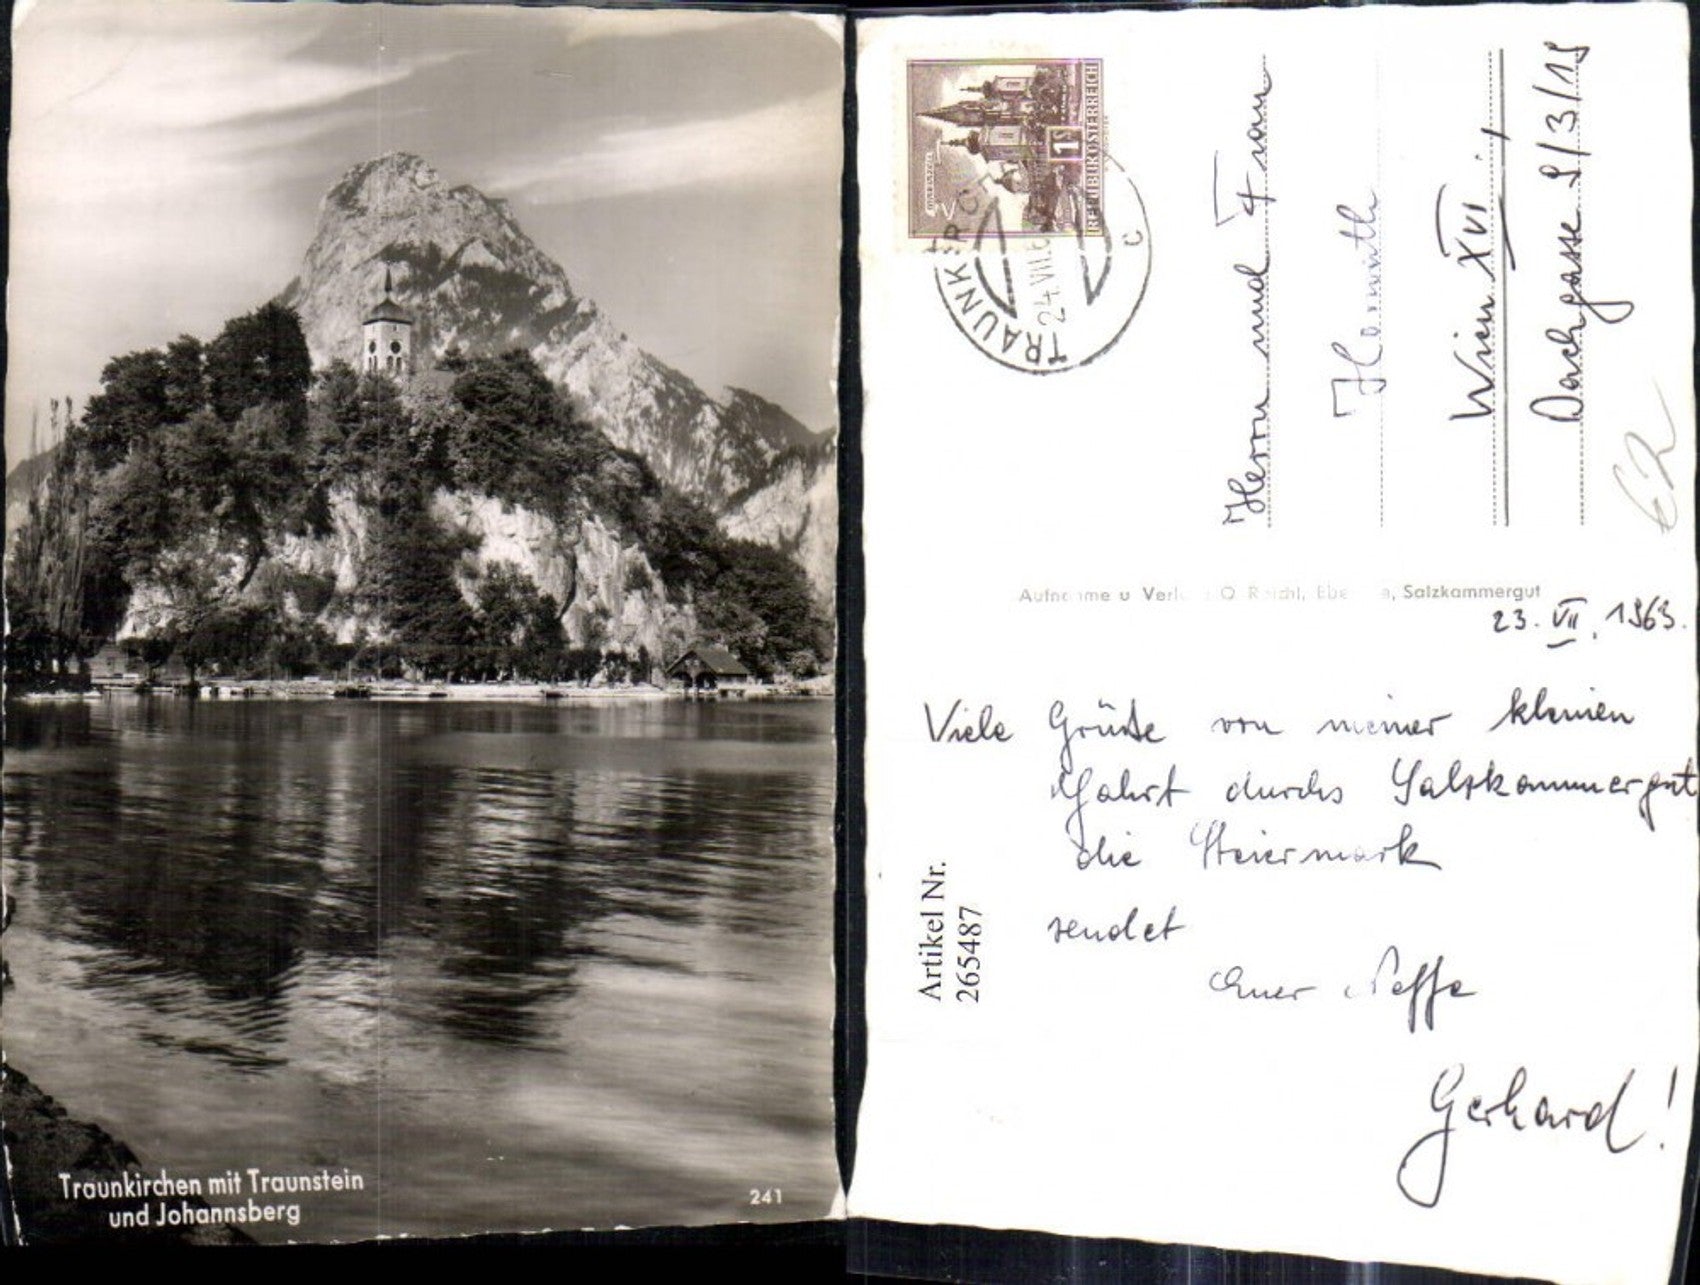 Traunkirchen mit Traunstein
und Johannsberg
241
REPUBLIK ÖSTERREICH
1S
MARIAZELL
TRAUNKIR
24.VII.6
c
Herrn und Frau
Wien XVI.,
Dachgasse 9/3/19
€2
Aufnahme u Verl Reichl, Ebe e, Salzkammergut
23. VII. 1963.
Viele Grüße von meiner kleinen
Fahrt durchs Salzkammergut
die Steiermark
sendet
Euer Neffe
Gerhard!
Artikel Nr.
265487